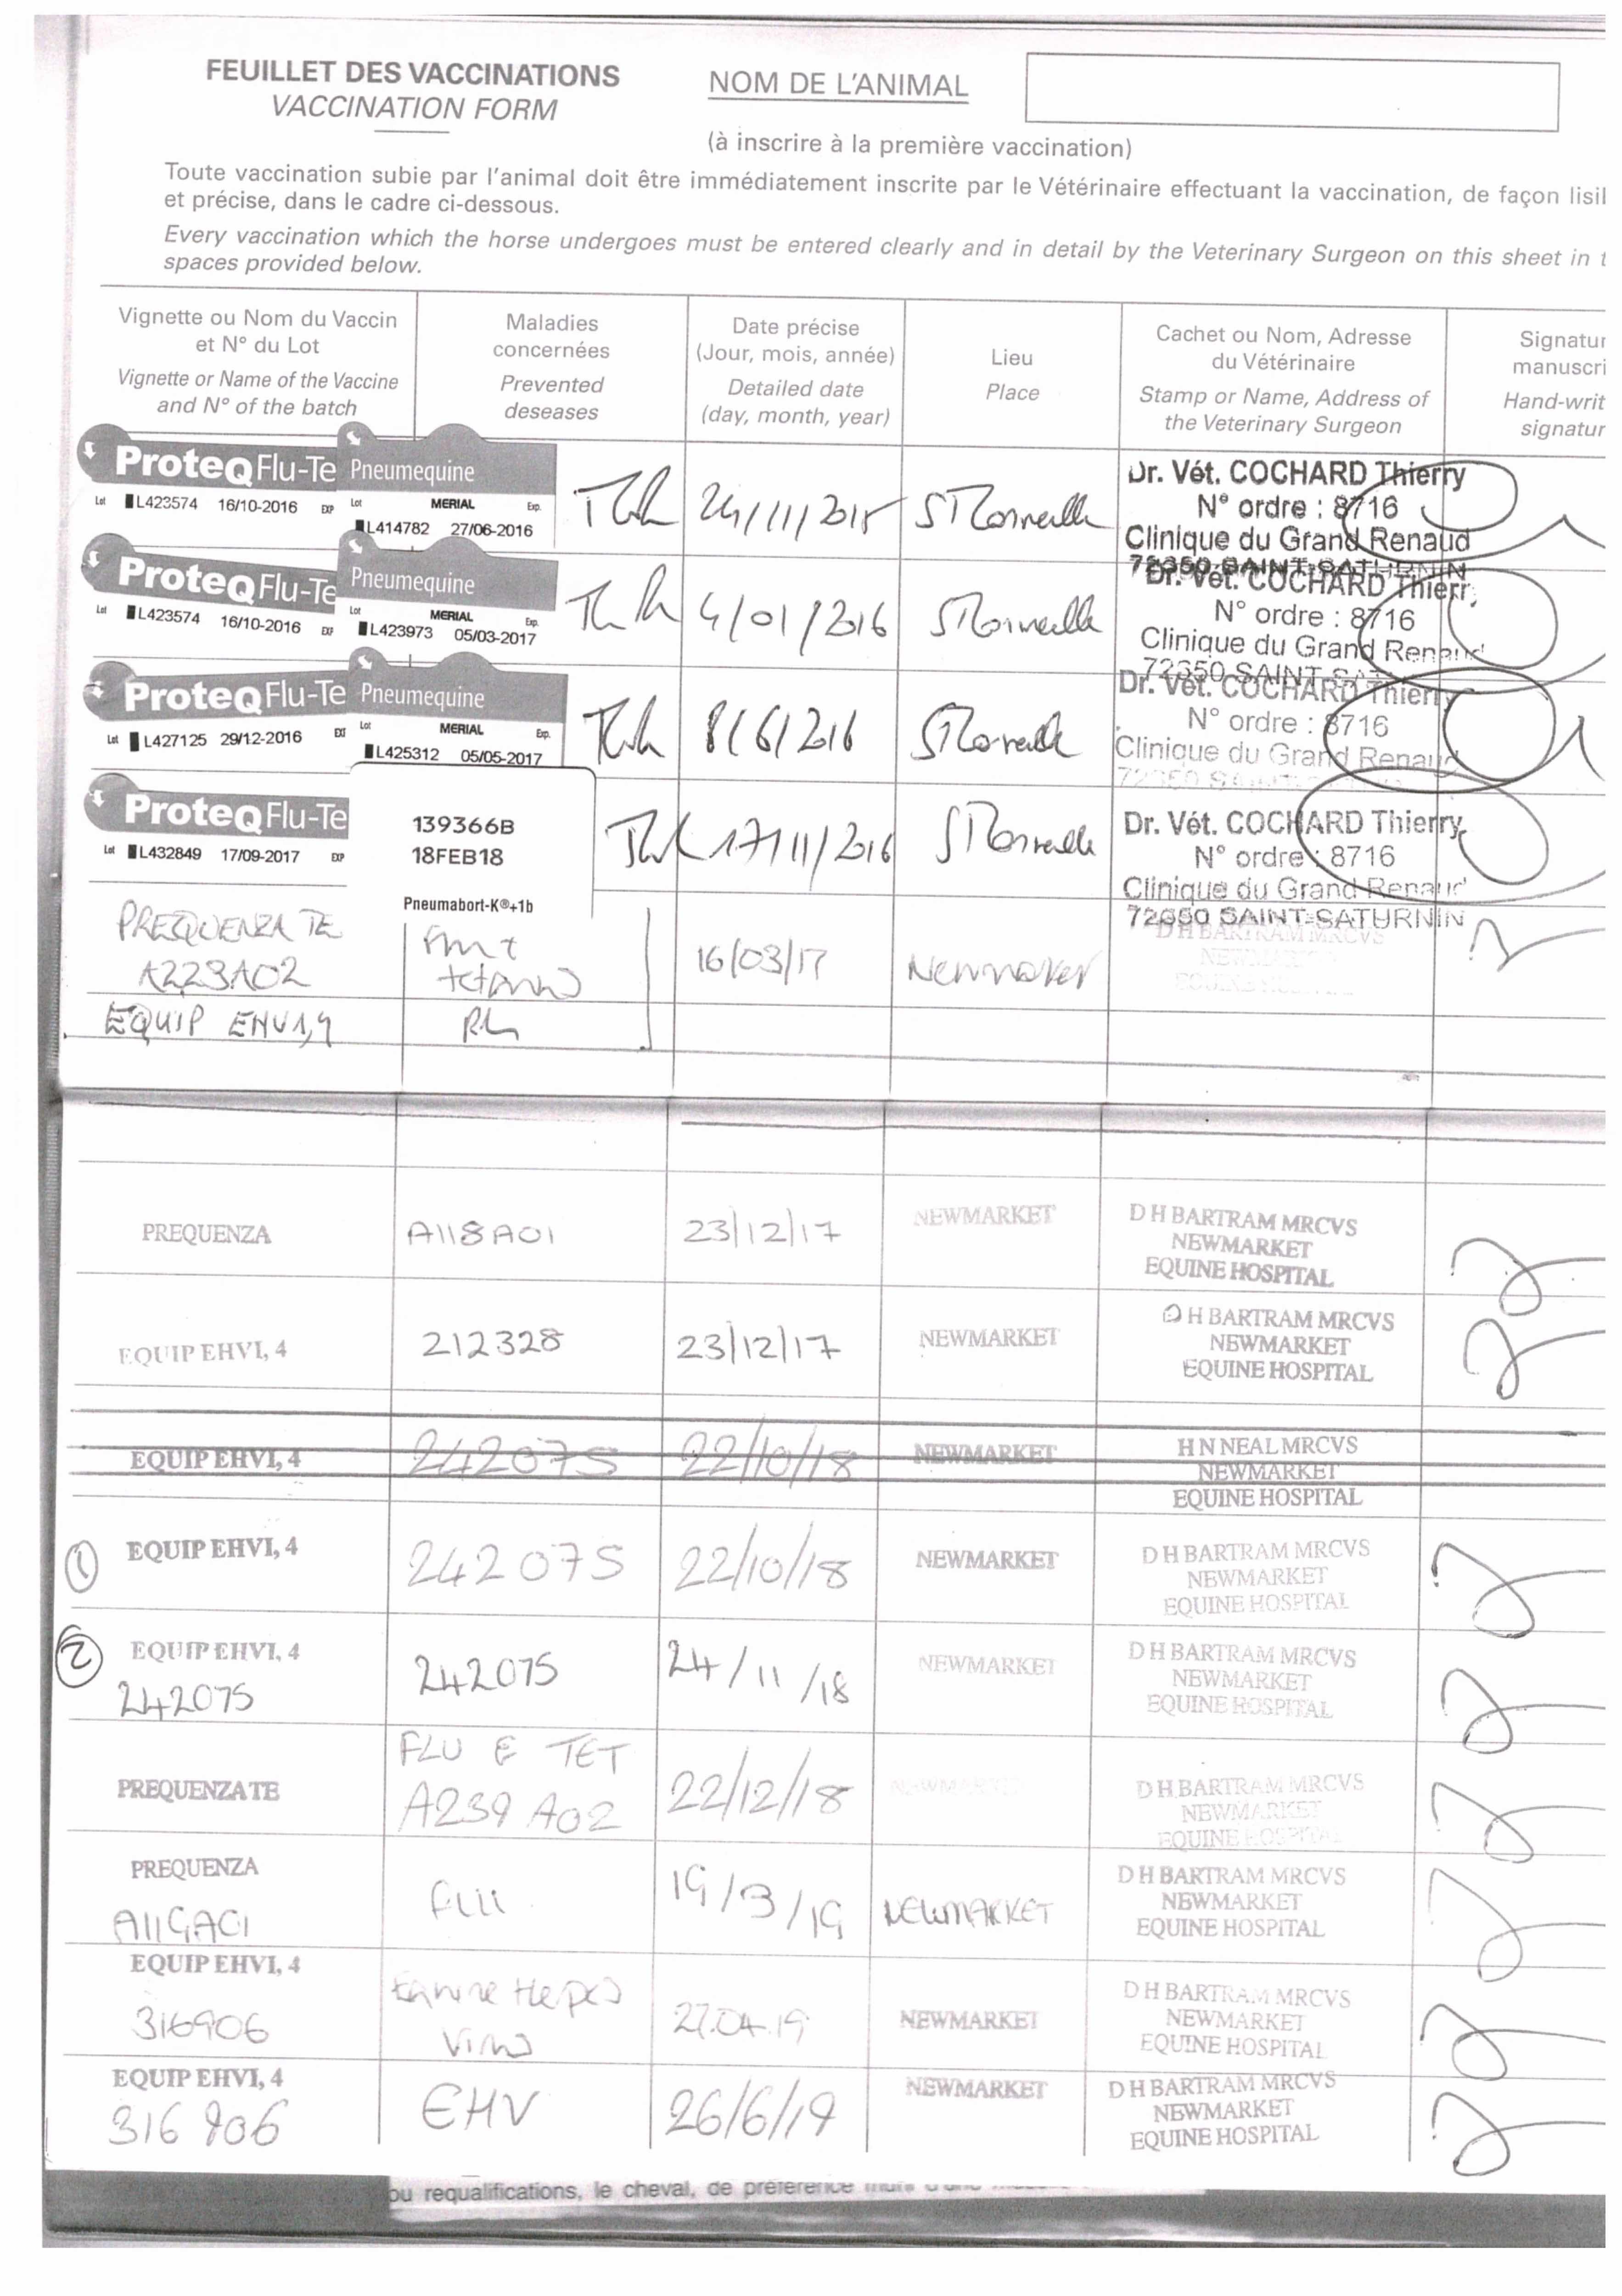 FEUILLET DES VACCINATIONS
VACCINATION FORM
NOM DE L'ANIMAL
(à inscrire à la première vaccination)
Toute vaccination subie par l'animal doit être immédiatement inscrite par le Vétérinaire effectuant la vaccination, de façon lisil
et précise, dans le cadre ci-dessous.
Every vaccination which the horse undergoes must be entered clearly and in detail by the Veterinary Surgeon on this sheet in t
spaces provided below.
Vignette ou Nom du Vaccin
et N° du Lot
Vignette or Name of the Vaccine
and N° of the batch
Maladies
concernées
Prevented
deseases
Date précise
(Jour, mois, année)
Detailed date
(day, month, year)
Lieu
Place
Cachet ou Nom, Adresse
du Vétérinaire
Stamp or Name, Address of
the Veterinary Surgeon
Signatur
manuscri
Hand-writ
signatur
ProteqFlu-Te Pneumequine
Lot L423574 16/10-2016 EXP Lot MERIAL Exp.
L414782 27/06-2016
24/11/2015
Dr. Vét. COCHARD Thierry
N° ordre : 8716
Clinique du Grand Renaud
72350 SAINT-SATURNIN
ProteqFlu-Te Pneumequine
Lot L423574 16/10-2016 EXP Lot MERIAL Exp.
L423973 05/03-2017
4/01/2016
Dr. Vét. COCHARD Thierr
N° ordre : 8716
Clinique du Grand Renaud
72350 SAINT
ProteqFlu-Te Pneumequine
Lot L427125 29/12-2016 Lot MERIAL Exp.
L425312 05/05-2017
8/6/2016
Dr. Vét. COCHARD Thierry
N° ordre : 8716
Clinique du Grand Renaud
ProteqFlu-Te
Lot L432849 17/09-2017 EXP
139366B
18FEB18
Pneumabort-K®+1b
17/11/2016
Dr. Vét. COCHARD Thierry
N° ordre : 8716
Clinique du Grand Renaud
72350 SAINT-SATURNIN
PREQUENZA TE
A223A02
tetanus
16/03/17
Newmarket
D H BARTRAM MRCVS
NEWMARKET
EQUINE HOSPITAL
EQUIP EHV1,4
PREQUENZA A118A01 23/12/17 NEWMARKET
D H BARTRAM MRCVS
NEWMARKET
EQUINE HOSPITAL
EQUIP EHVI, 4 212328 23/12/17 NEWMARKET
D H BARTRAM MRCVS
NEWMARKET
EQUINE HOSPITAL
EQUIP EHVI, 4 242075 22/10/18 NEWMARKET
H N NEAL MRCVS
NEWMARKET
EQUINE HOSPITAL
1 EQUIP EHVI, 4 242075 22/10/18 NEWMARKET
D H BARTRAM MRCVS
NEWMARKET
EQUINE HOSPITAL
2 EQUIP EHVI, 4
242075
242075 24/11/18 NEWMARKET
D H BARTRAM MRCVS
NEWMARKET
EQUINE HOSPITAL
PREQUENZA TE
FLU & TET
A239A02
22/12/18 NEWMARKET
D H BARTRAM MRCVS
NEWMARKET
EQUINE HOSPITAL
PREQUENZA
flu 19/3/19 NEWMARKET
D H BARTRAM MRCVS
NEWMARKET
EQUINE HOSPITAL
EQUIP EHVI, 4
316906
Equine Herpes
Virus
27.04.19 NEWMARKET
D H BARTRAM MRCVS
NEWMARKET
EQUINE HOSPITAL
EQUIP EHVI, 4
316906
EHV 26/6/19 NEWMARKET
D H BARTRAM MRCVS
NEWMARKET
EQUINE HOSPITAL
ou requalifications, le cheval, de préférence